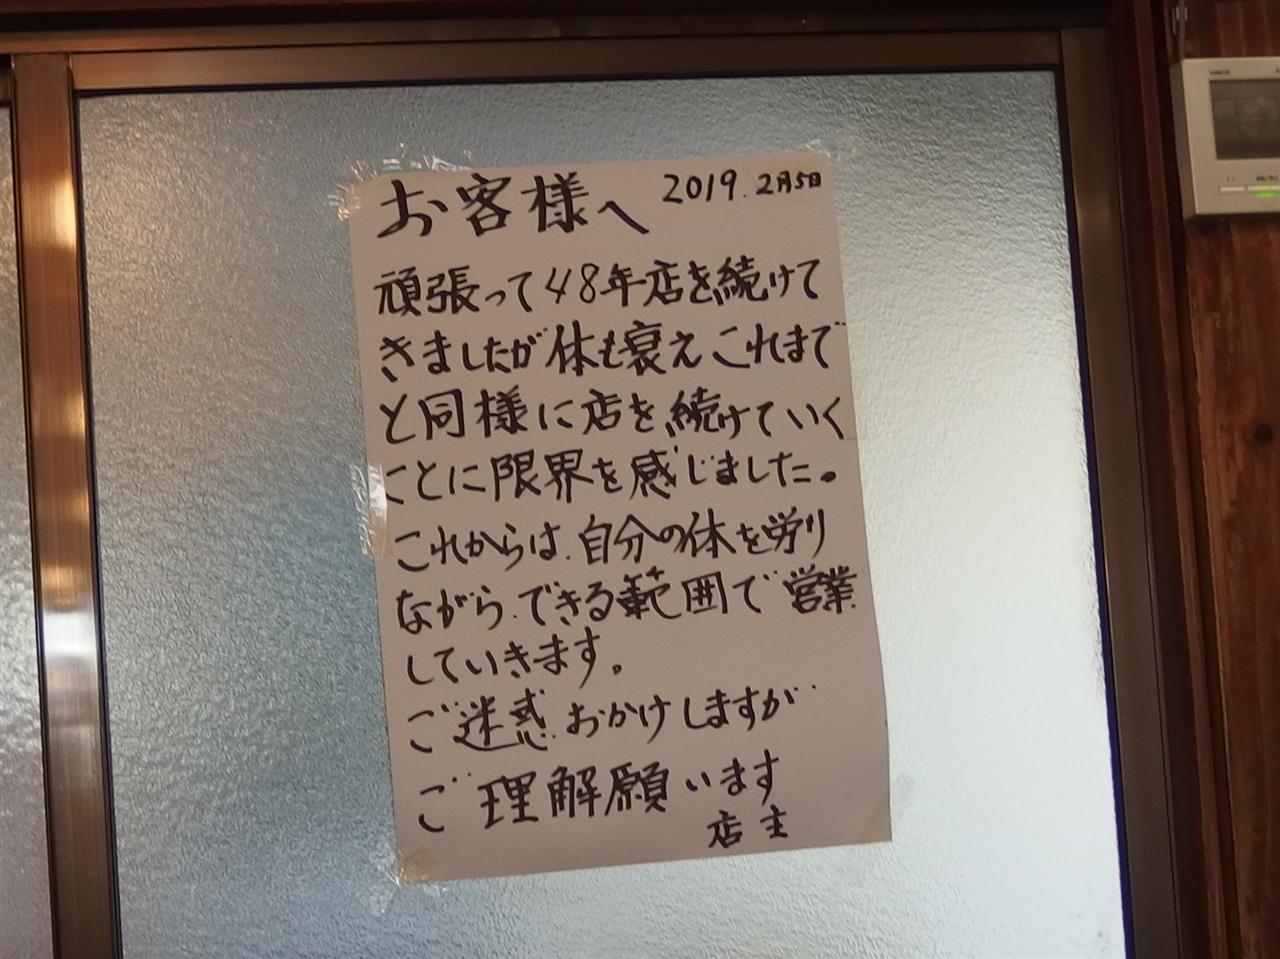 お客様へ 2019.2月5日
頑張って48年店を続けて
きましたが体も衰えこれまで
と同様に店を続けていく
ことに限界を感じました。
これからは、自分の体を労り
ながら、できる範囲で営業
していきます。
ご迷惑おかけしますが
ご理解願います
店主